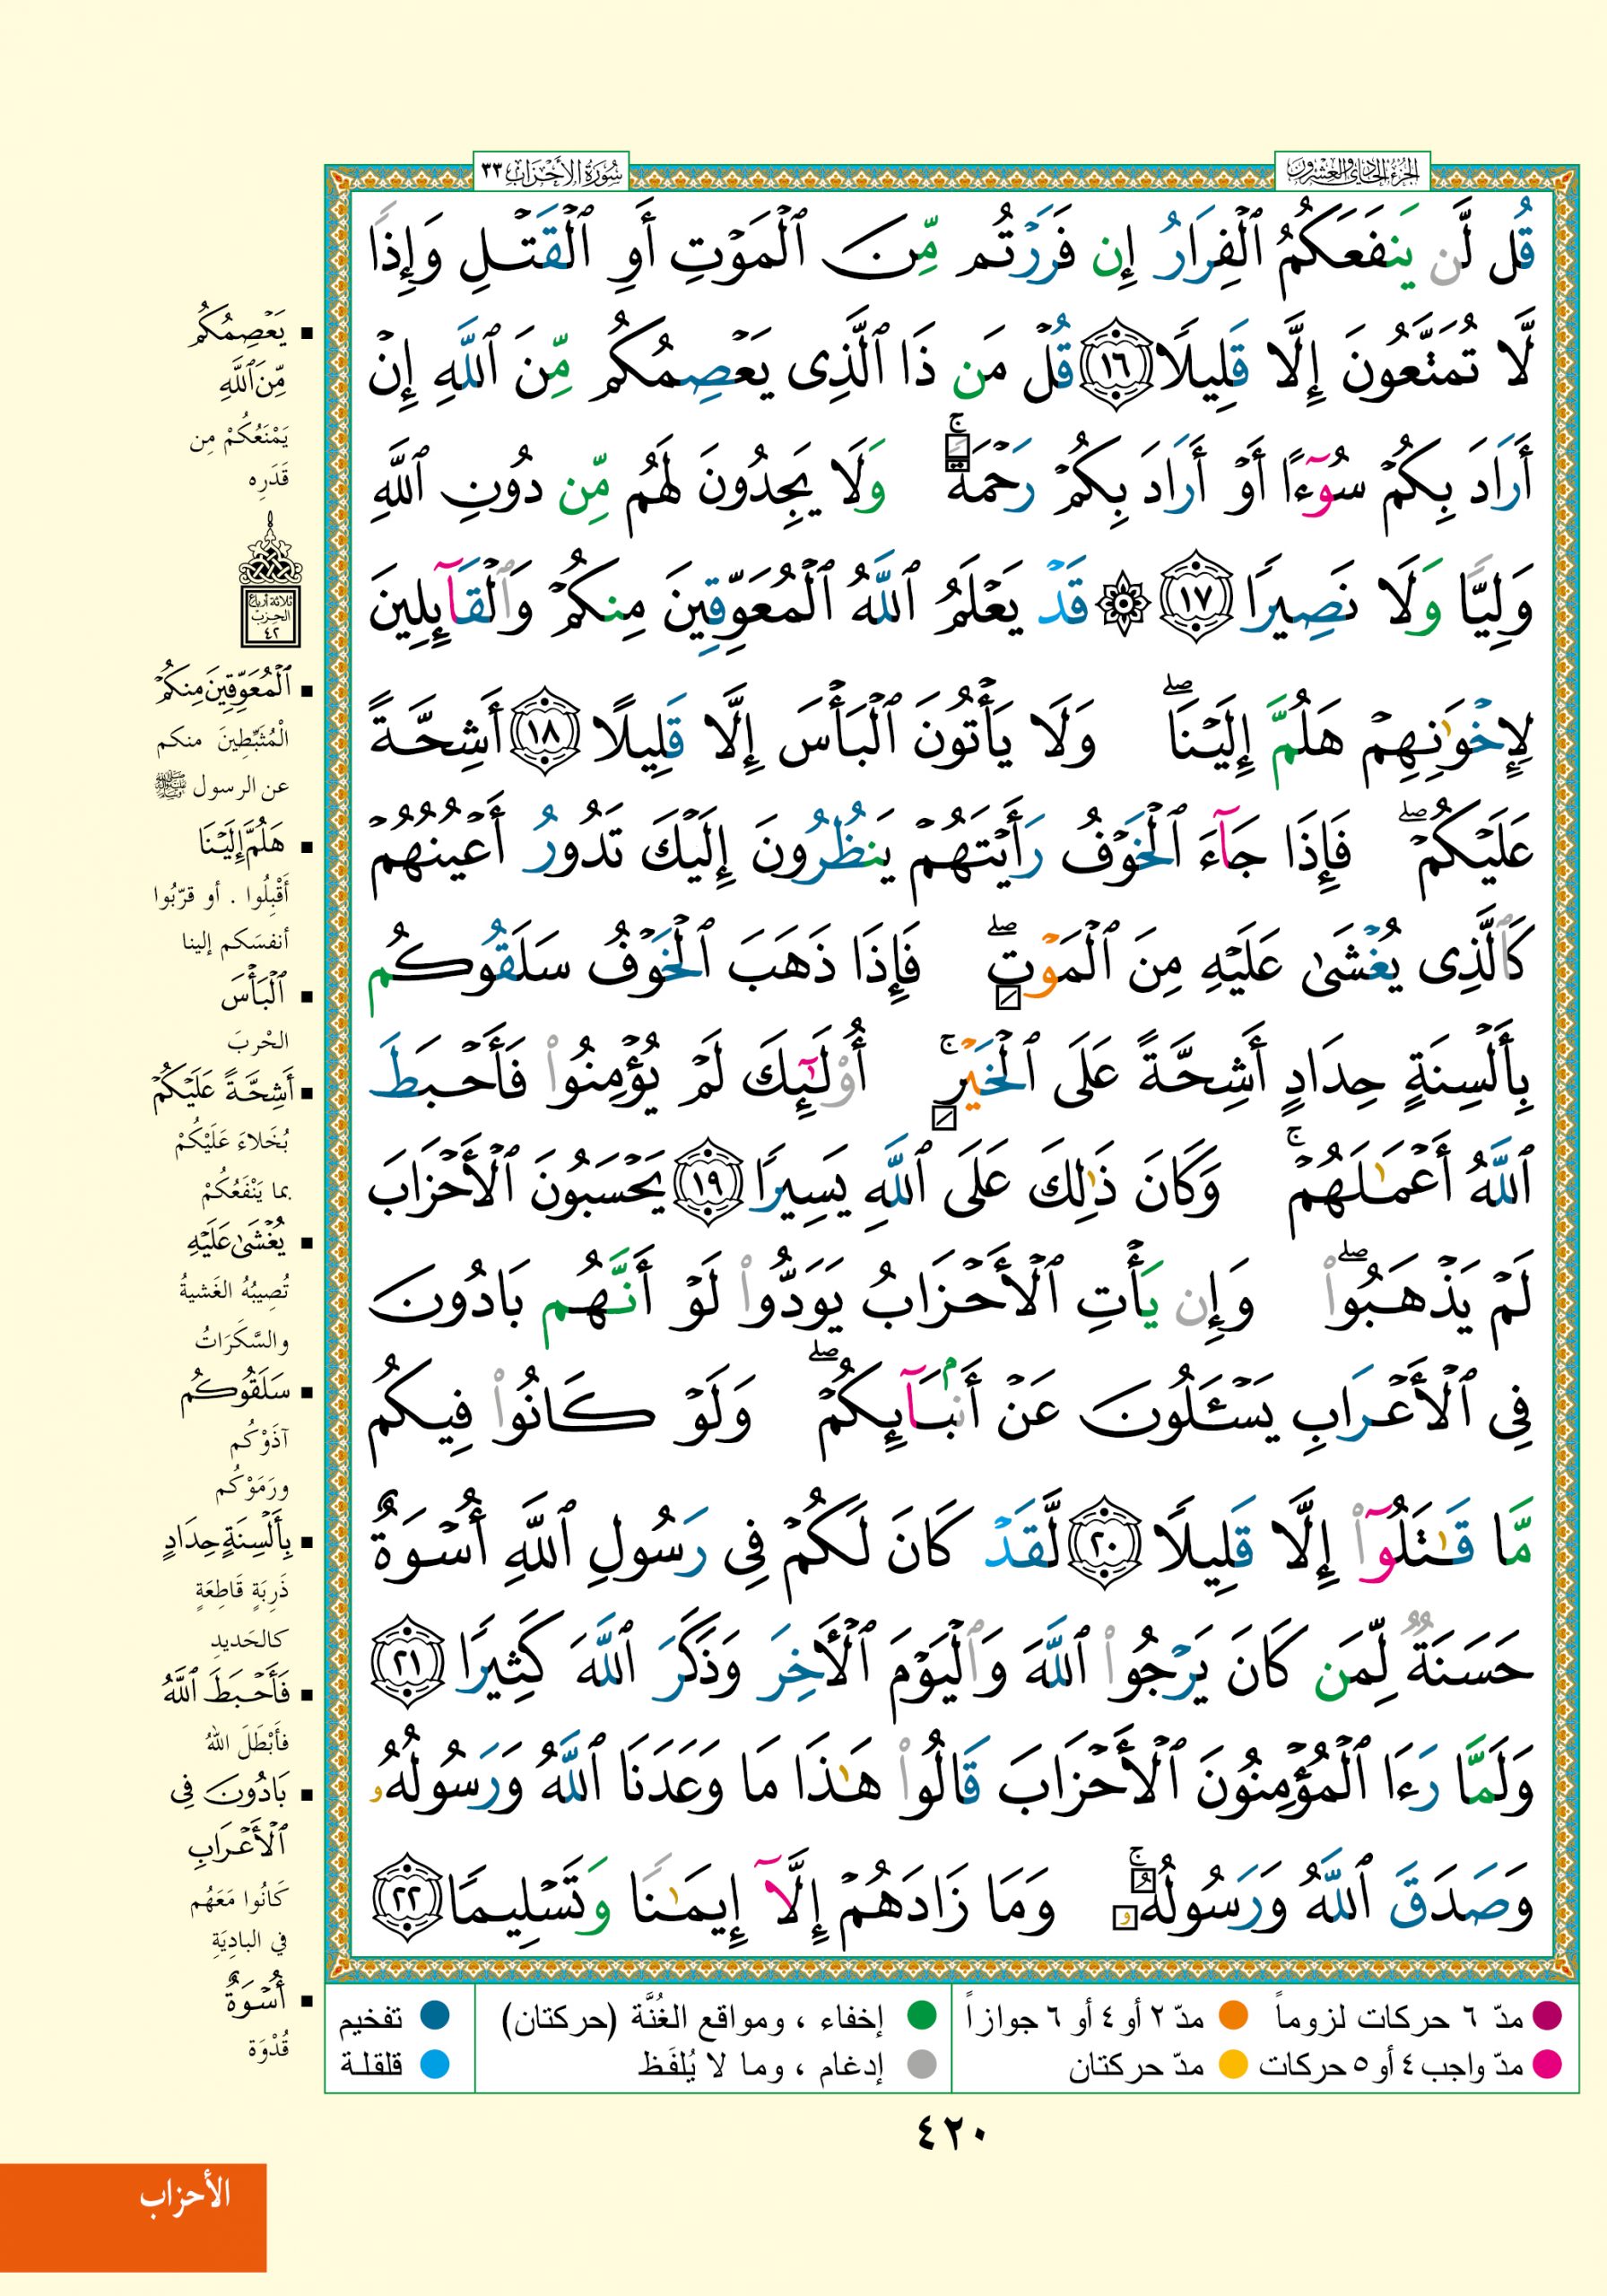 الجزء الحادي والعشرون
سُورَةُ الأَحْزَاب ٣٣
قُل لَّن يَنفَعَكُمُ ٱلْفِرَارُ إِن فَرَرْتُم مِّنَ ٱلْمَوْتِ أَوِ ٱلْقَتْلِ وَإِذًا
لَّا تُمَتَّعُونَ إِلَّا قَلِيلًا ١٦ قُلْ مَن ذَا ٱلَّذِى يَعْصِمُكُم مِّنَ ٱللَّهِ إِنْ
أَرَادَ بِكُمْ سُوٓءًا أَوْ أَرَادَ بِكُمْ رَحْمَةً ۚ وَلَا يَجِدُونَ لَهُم مِّن دُونِ ٱللَّهِ
وَلِيًّا وَلَا نَصِيرًا ١٧ ۞ قَدْ يَعْلَمُ ٱللَّهُ ٱلْمُعَوِّقِينَ مِنكُمْ وَٱلْقَآئِلِينَ
لِإِخْوَٰنِهِمْ هَلُمَّ إِلَيْنَا ۖ وَلَا يَأْتُونَ ٱلْبَأْسَ إِلَّا قَلِيلًا ١٨ أَشِحَّةً
عَلَيْكُمْ ۖ فَإِذَا جَآءَ ٱلْخَوْفُ رَأَيْتَهُمْ يَنظُرُونَ إِلَيْكَ تَدُورُ أَعْيُنُهُمْ
كَٱلَّذِى يُغْشَىٰ عَلَيْهِ مِنَ ٱلْمَوْتِ ۖ فَإِذَا ذَهَبَ ٱلْخَوْفُ سَلَقُوكُم
بِأَلْسِنَةٍ حِدَادٍ أَشِحَّةً عَلَى ٱلْخَيْرِ ۚ أُو۟لَٰٓئِكَ لَمْ يُؤْمِنُوا۟ فَأَحْبَطَ
ٱللَّهُ أَعْمَٰلَهُمْ ۚ وَكَانَ ذَٰلِكَ عَلَى ٱللَّهِ يَسِيرًا ١٩ يَحْسَبُونَ ٱلْأَحْزَابَ
لَمْ يَذْهَبُوا۟ ۖ وَإِن يَأْتِ ٱلْأَحْزَابُ يَوَدُّوا۟ لَوْ أَنَّهُم بَادُونَ
فِى ٱلْأَعْرَابِ يَسْـَٔلُونَ عَنْ أَنۢبَآئِكُمْ ۖ وَلَوْ كَانُوا۟ فِيكُم
مَّا قَٰتَلُوٓا۟ إِلَّا قَلِيلًا ٢٠ لَّقَدْ كَانَ لَكُمْ فِى رَسُولِ ٱللَّهِ أُسْوَةٌ
حَسَنَةٌ لِّمَن كَانَ يَرْجُوا۟ ٱللَّهَ وَٱلْيَوْمَ ٱلْءَاخِرَ وَذَكَرَ ٱللَّهَ كَثِيرًا ٢١
وَلَمَّا رَءَا ٱلْمُؤْمِنُونَ ٱلْأَحْزَابَ قَالُوا۟ هَٰذَا مَا وَعَدَنَا ٱللَّهُ وَرَسُولُهُۥ
وَصَدَقَ ٱللَّهُ وَرَسُولُهُۥ ۚ وَمَا زَادَهُمْ إِلَّآ إِيمَٰنًا وَتَسْلِيمًا ٢٢
يَعْصِمُكُم
مِّنَ ٱللَّهِ
يَمْنَعُكُمْ مِن
قَدَرِه
ثلاثة أرباع
الحزب
٤٢
ٱلْمُعَوِّقِينَ مِنكُمْ
الْمُثَبِّطِينَ منكم
عن الرسول ﷺ
هَلُمَّ إِلَيْنَا
أَقْبِلُوا . أو قرّبُوا
أنفسَكم إلينا
ٱلْبَأْسَ
الحْربَ
أَشِحَّةً عَلَيْكُمْ
بُخَلاءَ عَلَيْكُمْ
بما يَنْفَعُكُمْ
يُغْشَىٰ عَلَيْهِ
تُصِيبُهُ الغَشيةُ
والسَّكَرَاتُ
سَلَقُوكُم
آذَوْكُم
ورَمَوْكُم
بِأَلْسِنَةٍ حِدَادٍ
ذَرِبَةٍ قَاطِعَةٍ
كالحَديدِ
فَأَحْبَطَ ٱللَّهُ
فأَبْطَلَ اللهُ
بَادُونَ فِى
ٱلْأَعْرَابِ
كَانُوا مَعَهُم
في البادِيَةِ
أُسْوَةٌ
قُدْوَة
مدّ ٦ حركات لزوماً مدّ ٢ أو ٤ أو ٦ جوازاً إخفاء ، ومواقع الغُنَّة (حركتان) تفخيم
مدّ واجب ٤ أو ٥ حركات مدّ حركتان إدغام ، وما لا يُلفَظ قلقلة
٤٢٠
الأحزاب